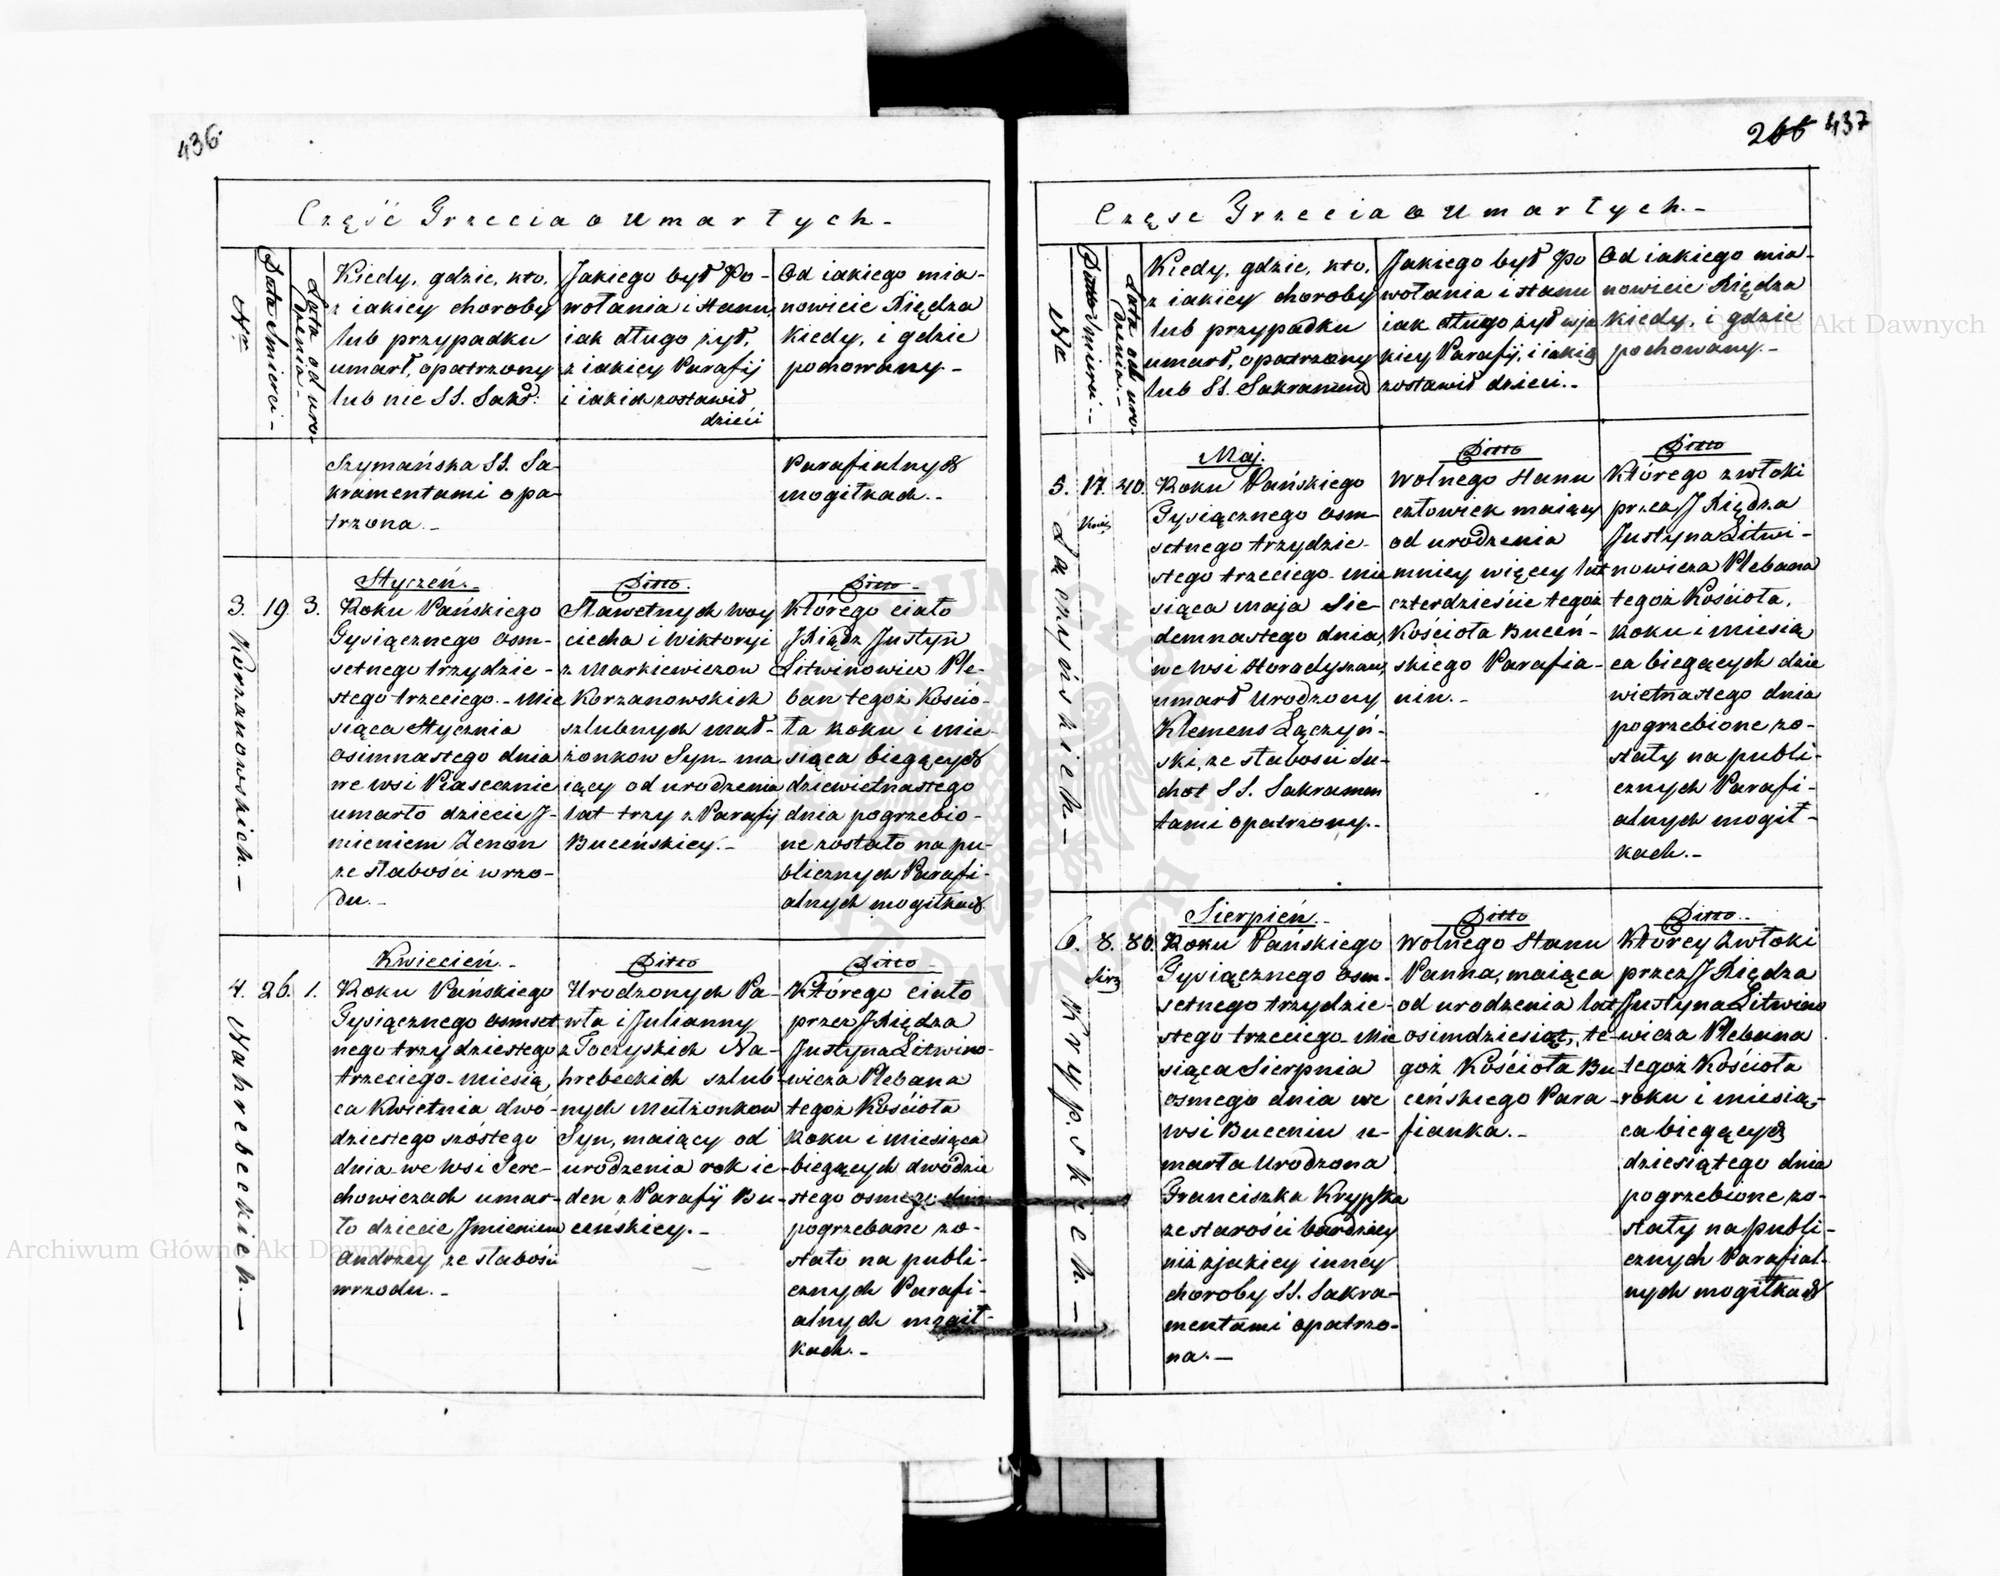 436
Część Trzecia o Umartych -
Nro
Data Śmierci -
Lata od uro-
dzenia -
Kiedy, gdzie, kto,
z iakiey choroby
lub przypadku
umarł, opatrzony
lub nie SS. Sakr:
Jakiego był Po-
wołania i stanu
iak długo żył,
z iakiey Parafij
i iakich zostawił
dzieci
Od iakiego mia-
nowicie Xiędza
kiedy, i gdzie
pochowany -
Szymańska SS. Sa-
kramentami opa-
trzona. -
Parafialnych
mogiłkach. -
3. 19. 3.
Korzanowskich. -
Styczeń. -
Roku Pańskiego
Tysiącznego osm-
setnego trzydzie-
stego trzeciego - Mie
siąca Stycznia
osimnastego dnia
we wsi Piasecznie
umarło dziecie J-
mieniem Zenon
ze słabości wrzo-
du. -
Ditto.
Sławetnych Woy
ciecha i Wiktoryi
z Markiewiczow
Korzanowskich
szlubnych Mał-
żonkow Syn - ma
iący od urodzenia
lat trzy z Parafij
Buceńskiey. -
Ditto -
Którego ciało
J Xiądz Justyn
Litwinowicz Ple-
ban tegoż Kościo-
ła roku i mie-
siąca biegących
dziewietnastego
dnia pogrzebio-
ne zostało na pu-
blicznych Parafi-
alnych mogiłkach
4. 26. 1.
Nahrebeckich. -
Kwiecień. -
Roku Pańskiego
Tysiącznego osmset
nego trzydziestego
trzeciego - miesią
ca Kwietnia dwó-
dziestego szóstego
dnia we wsi Sere-
chowiczach umar-
ło dziecie Jmieniem
Andrzey ze słabości
wrzodu. -
Ditto
Urodzonych Pa-
wła i Julianny
z Toczyskich Na-
hrebeckich szlub-
nych Małżonkow
Syn, maiący od
urodzenia rok ie-
den z Parafij Bu-
ceńskiey. -
Ditto
Którego ciało
przez J Xiędza
Justyna Litwino-
wicza Plebana
tegoż Kościoła
roku i miesiąca
biegących dwódzie
stego osmego dnia
pogrzebane zo-
stało na publi-
cznych Parafi-
alnych mogił-
kach. -
266 437
Częsc Trzecia o Umartych. -
Nro
Data Śmierci. -
Lata od uro-
dzenia. -
Kiedy, gdzie, kto,
z iakiey choroby
lub przypadku
umarł, opatrzony
lub SS. Sakramen
Jakiego był Po
wołania i stanu
iak długo żył w ja
kiey Parafij, i iakie
zostawił dzieci. -
Od iakiego mia-
nowicie Xiędza
kiedy, i gdzie
pochowany. -
5. 17. 40.
Łączyńskich -
Maj.
Roku Pańskiego
Tysiącznego osm-
setnego trzydzie-
stego trzeciego - mie
siąca Maja Sie-
demnastego dnia
we wsi Horadyszczu,
umarł Urodzony
Klemens Łączyń-
ski, ze słabości Su-
chot SS. Sakramen
tami opatrzony. -
Ditto
Wolnego Stanu
człowiek maiący
od urodzenia
mniey więcey lat
czterdzieście tegoż
Kościoła Buceń-
skiego Parafia-
nin. -
Ditto
Którego zwłoki
przez J Xiędza
Justyna Litwi-
nowicza Plebana
tegoż Kościoła.
roku i miesią
ca biegących dzie
wietnastego dnia
pogrzebione zo-
stały na publi-
cznych Parafi-
alnych mogił-
kach. -
6. 8. 80.
Krypskich. -
Sierpień. -
Roku Pańskiego
Tysiącznego osm-
setnego trzydzie-
stego trzeciego Mie
siąca Sierpnia
osmego dnia we
wsi Buceniu u-
marła Urodzona
Franciszka Krypska
ze starości bardziey
niż zjakiey inney
choroby SS. Sakra-
mentami opatrzo-
na. -
Ditto
Wolnego Stanu
Panna, maiąca
od urodzenia lat
osimdziesiąt, te-
goż Kościoła Bu-
ceńskiego Para-
fianka. -
Ditto. -
Którey zwłoki
przez J Xiędza
Justyna Litwino
wicza Plebana
tegoż Kościoła
roku i miesią-
ca biegących
dziesiątego dnia
pogrzebione zo-
stały na publi-
cznych Parafial-
nych mogiłkach
Archiwum Główne Akt Dawnych
Archiwum Główne Akt Dawnych